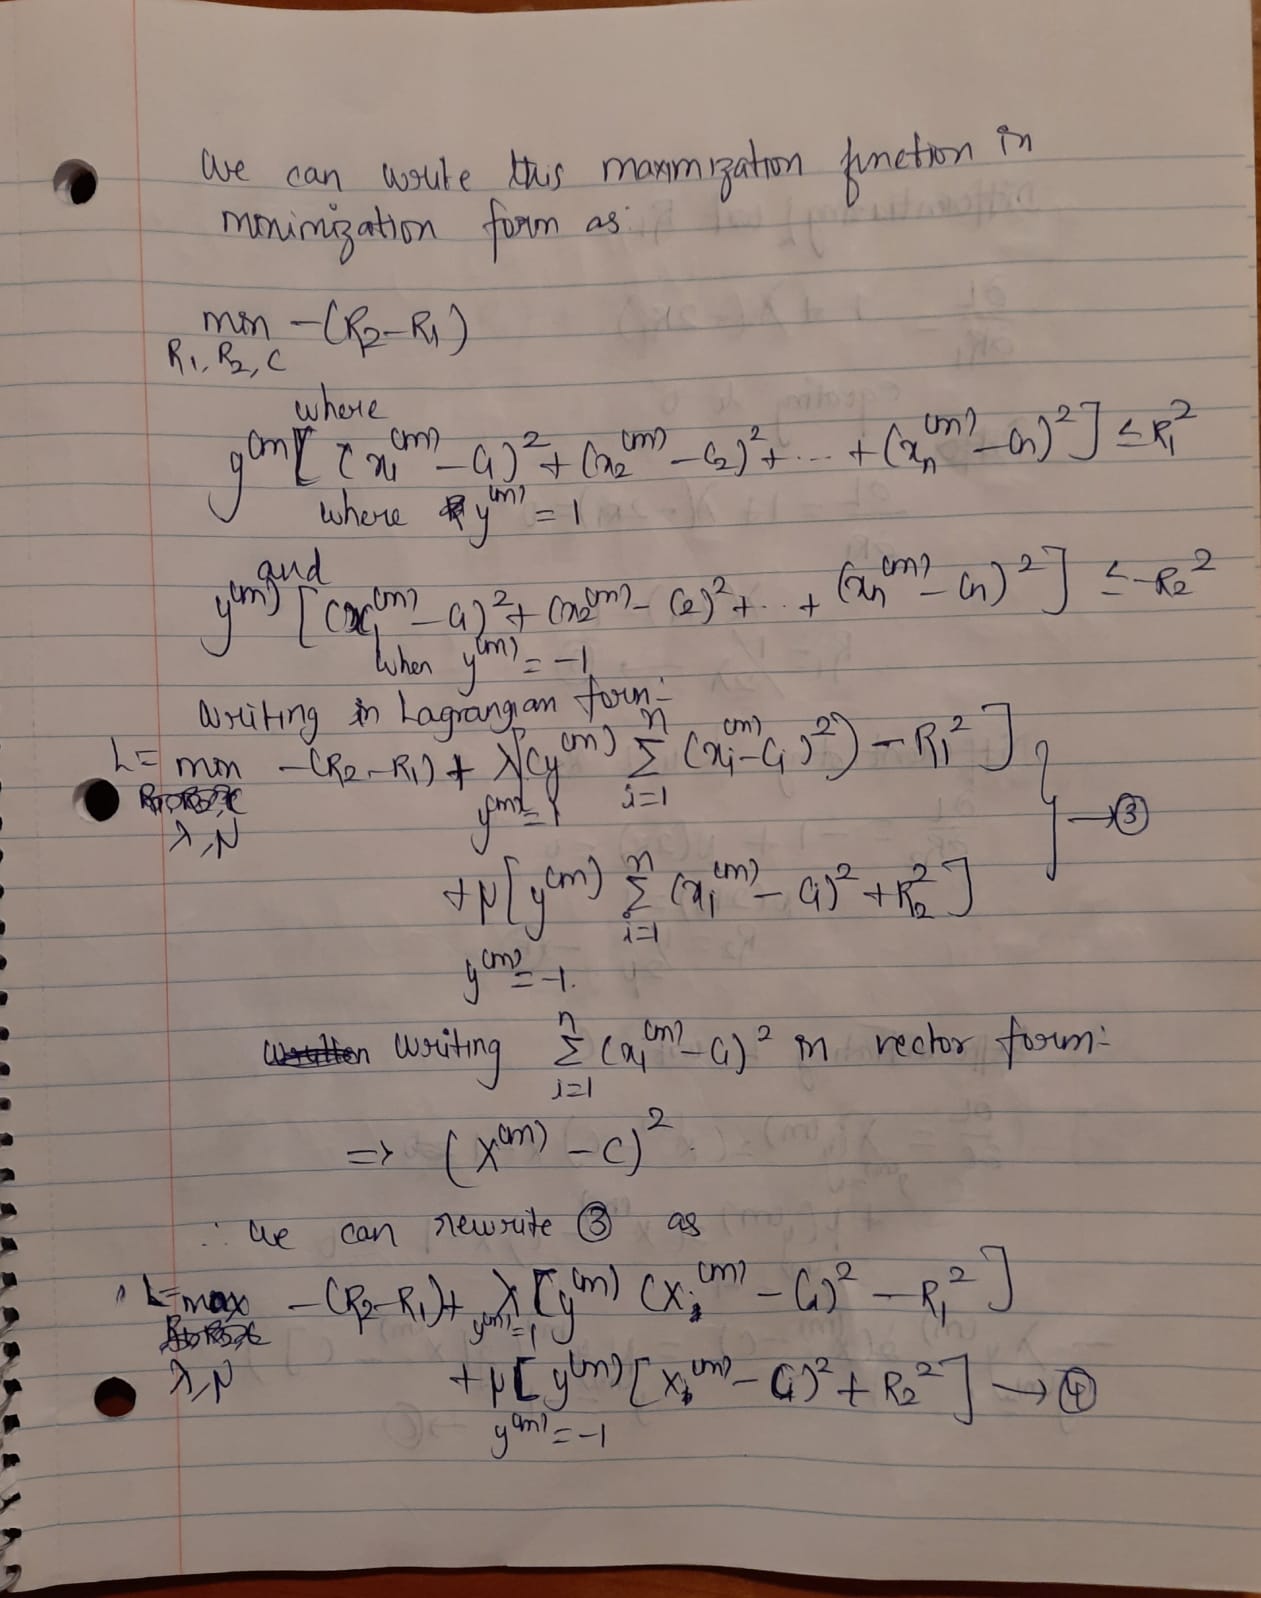 We can write this maximization function in
minimization form as:
min -(R₂-R₁)
R₁, R₂, C
where
y⁽ᵐ⁾[(x₁⁽ᵐ⁾-C₁)²+(x₂⁽ᵐ⁾-C₂)²+...+(xₙ⁽ᵐ⁾-Cₙ)²] ≤ R₁²
where y⁽ᵐ⁾ = 1
and
y⁽ᵐ⁾[(x₁⁽ᵐ⁾-C₁)²+(x₂⁽ᵐ⁾-C₂)²+...+(xₙ⁽ᵐ⁾-Cₙ)²] ≤ -R₂²
when y⁽ᵐ⁾ = -1
Writing in Lagrangian form:-
L = min -(R₂-R₁) + λ[(y⁽ᵐ⁾ Σᵢ₌₁ⁿ (xᵢ⁽ᵐ⁾-Cᵢ)²) - R₁²]
λ, μ y⁽ᵐ⁾=1 → ③
+μ[y⁽ᵐ⁾ Σᵢ₌₁ⁿ (xᵢ⁽ᵐ⁾-Cᵢ)² + R₂²]
y⁽ᵐ⁾ = -1.
writing Σᵢ₌₁ⁿ (xᵢ⁽ᵐ⁾-Cᵢ)² in vector form:-
=> (X⁽ᵐ⁾ - C)².
∴ We can rewrite ③ as
L = max -(R₂-R₁)+ λ[y⁽ᵐ⁾ (Xᵢ⁽ᵐ⁾ - Cᵢ)² - R₁²]
λ, μ y⁽ᵐ⁾=1
+μ[y⁽ᵐ⁾[Xᵢ⁽ᵐ⁾ - Cᵢ)² + R₂²] → ④
y⁽ᵐ⁾ = -1